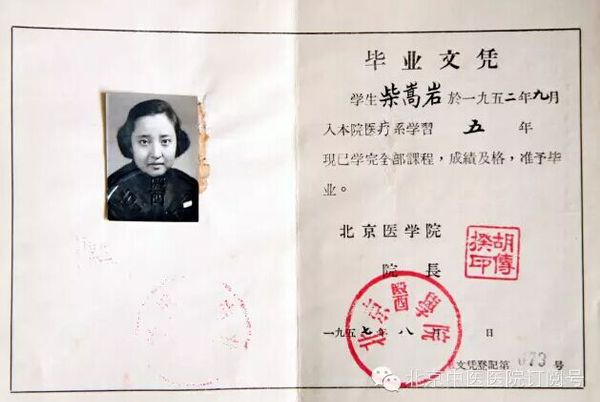 毕业文凭
学生柴嵩岩於一九五二年九月
入本院医疗系学習 五 年
現已学完全部課程，成績及格，准予毕
业。
北京医学院
院 長
胡傳揆印
北京醫學院
一九五七年八月 日
文凭登記第 073 号
北京中医医院订阅号